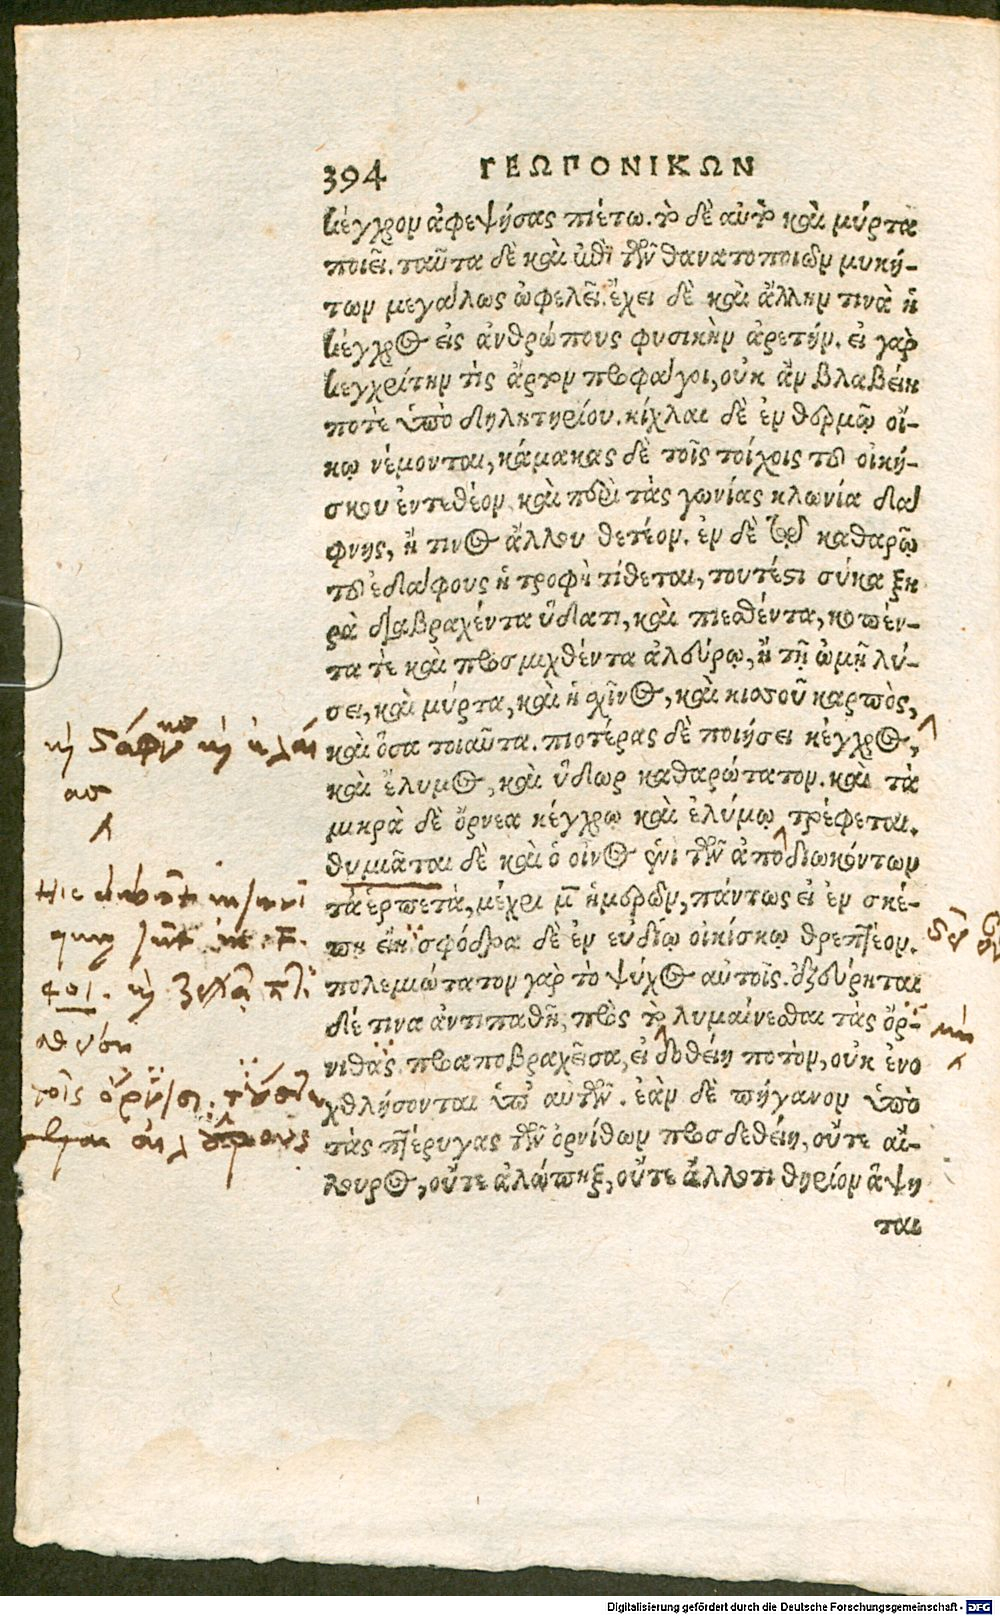 394 ΓΕΩΠΟΝΙΚΩΝ
κέγχρον ἀφεψήσας πιέτω. τὸ δὲ αὐτὸ καὶ μύρτα
ποιεῖ. ταῦτα δὲ καὶ ἐπὶ τῶν θανατοποιῶν μυκή-
των μεγάλως ὠφελεῖ. ἔχει δὲ καὶ ἄλλην τινὰ ἡ
κέγχρος εἰς ἀνθρώπους φυσικὴν ἀρετήν. εἰ γὰρ
κεγχρίτην τὶς ἄρτον προφάγοι, οὐκ ἂν βλαβείη
ποτὲ ὑπὸ δηλητηρίου. κίχλαι δὲ ἐν θερμῷ οἴ-
κῳ νέμονται, κάμακας δὲ τοῖς τοίχοις τοῦ οἰκή-
σκου ἐντεθέον, καὶ περὶ τὰς γωνίας κλωνία δά
φνης, ἤ τινος ἄλλου θετέον. ἐν δὲ τῷ καθαρῷ
τοῦ ἐδάφους ἡ τροφὴ τίθεται, τουτέστι σύκα ξη
ρὰ διαβραχέντα ὕδατι, καὶ πιεσθέντα, κοπέν-
τα τὲ καὶ προσμιχθέντα ἀλεύρῳ, ἢ τῇ ὠμῇ λύ-
σει, καὶ μύρτα, καὶ ἡ σχῖνος, καὶ κισσοῦ καρπὸς,
καὶ ὅσα τοιαῦτα. πιοτέρας δὲ ποιήσει κέγχρος,
καὶ ἔλυμος, καὶ ὕδωρ καθαρώτατον. καὶ τὰ
μικρὰ δὲ ὄρνεα κέγχρῳ καὶ ἐλύμῳ τρέφεται.
θυμιᾶται δὲ καὶ ὁ οἶνος ἐπὶ τῶν ἀποδιωκόντων
τὰ ἑρπετὰ, μέχρι μ̅ ἡμερῶν, πάντως εἰ ἐν σκέ-
πῃ εἴη σφόδρα δὲ ἐν εὐδίῳ οἰκίσκῳ θρεπτέον.
πολεμιώτατον γὰρ τὸ ψύχος αὐτοῖς. ἐξεύρηται
δέ τινα ἀντιπαθῆ, πρὸς τὸ λυμαίνεσθαι τὰς ὄρ-
νιθας προαποβραχεῖσα, εἰ δοθείη ποτὸν, οὐκ ἐνο
χθλήσονται ὑπ' αὐτῶν. ἐὰν δὲ πήγανον ὑπὸ
τὰς πτέρυγας τῶν ὀρνίθων προσδεθείη, οὔτε αἴ-
λουρος, οὔτε ἀλώπηξ, οὔτε ἄλλοτι θηρίον ἅψη
ται
Digitalisierung gefördert durch die Deutsche Forschungsgemeinschaft - DFG